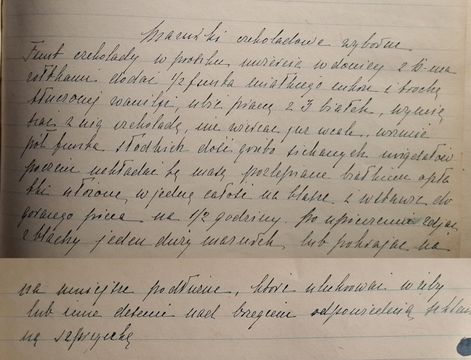 Mazurki czekoladowe wyborne
Funt czekolady w proszku umieścić w donicy z 2
żółtkami dodać 1/2 funta miałkiego cukru i trochę
tłuczonej wanilji, ubić pianę z 3 białek, wymie
szać z nią czekoladę, nie wiercąc już wcale, wsunie
pół funta słodkich dość grubo siekanych migdałów
poczem nakładać tę masę przelepiane białkiem opła
tki ułożone w jedną całość na blasze i wstawić do
gorącego pieca na 1/2 godziny. po upieczeniu zdjąć
z blachy jeden duży mazurek, lub pokrajać na
na mniejsze podłużne, które ulukrować w
lub inne desenie nad brzegiem odpowiednią
na szprycką